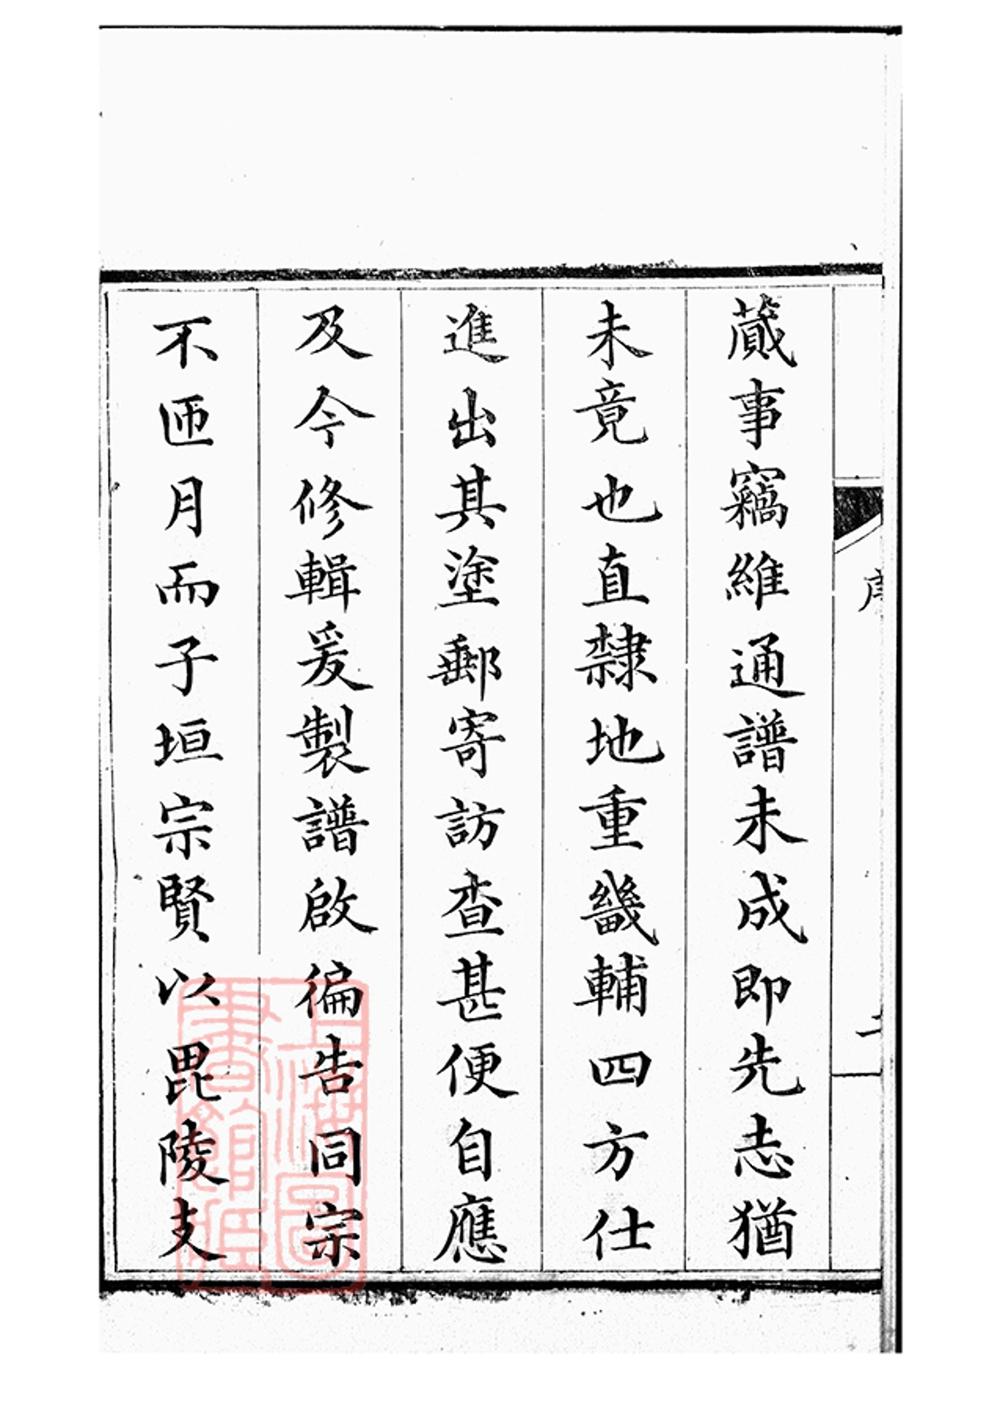 序
蕆事竊維通譜未成即先志猶
未竟也直隸地重畿輔四方仕
進出其塗郵寄訪查甚便自應
及今修輯爰製譜啟徧告同宗
不匝月而子垣宗賢以毘陵支
上海圖
書館